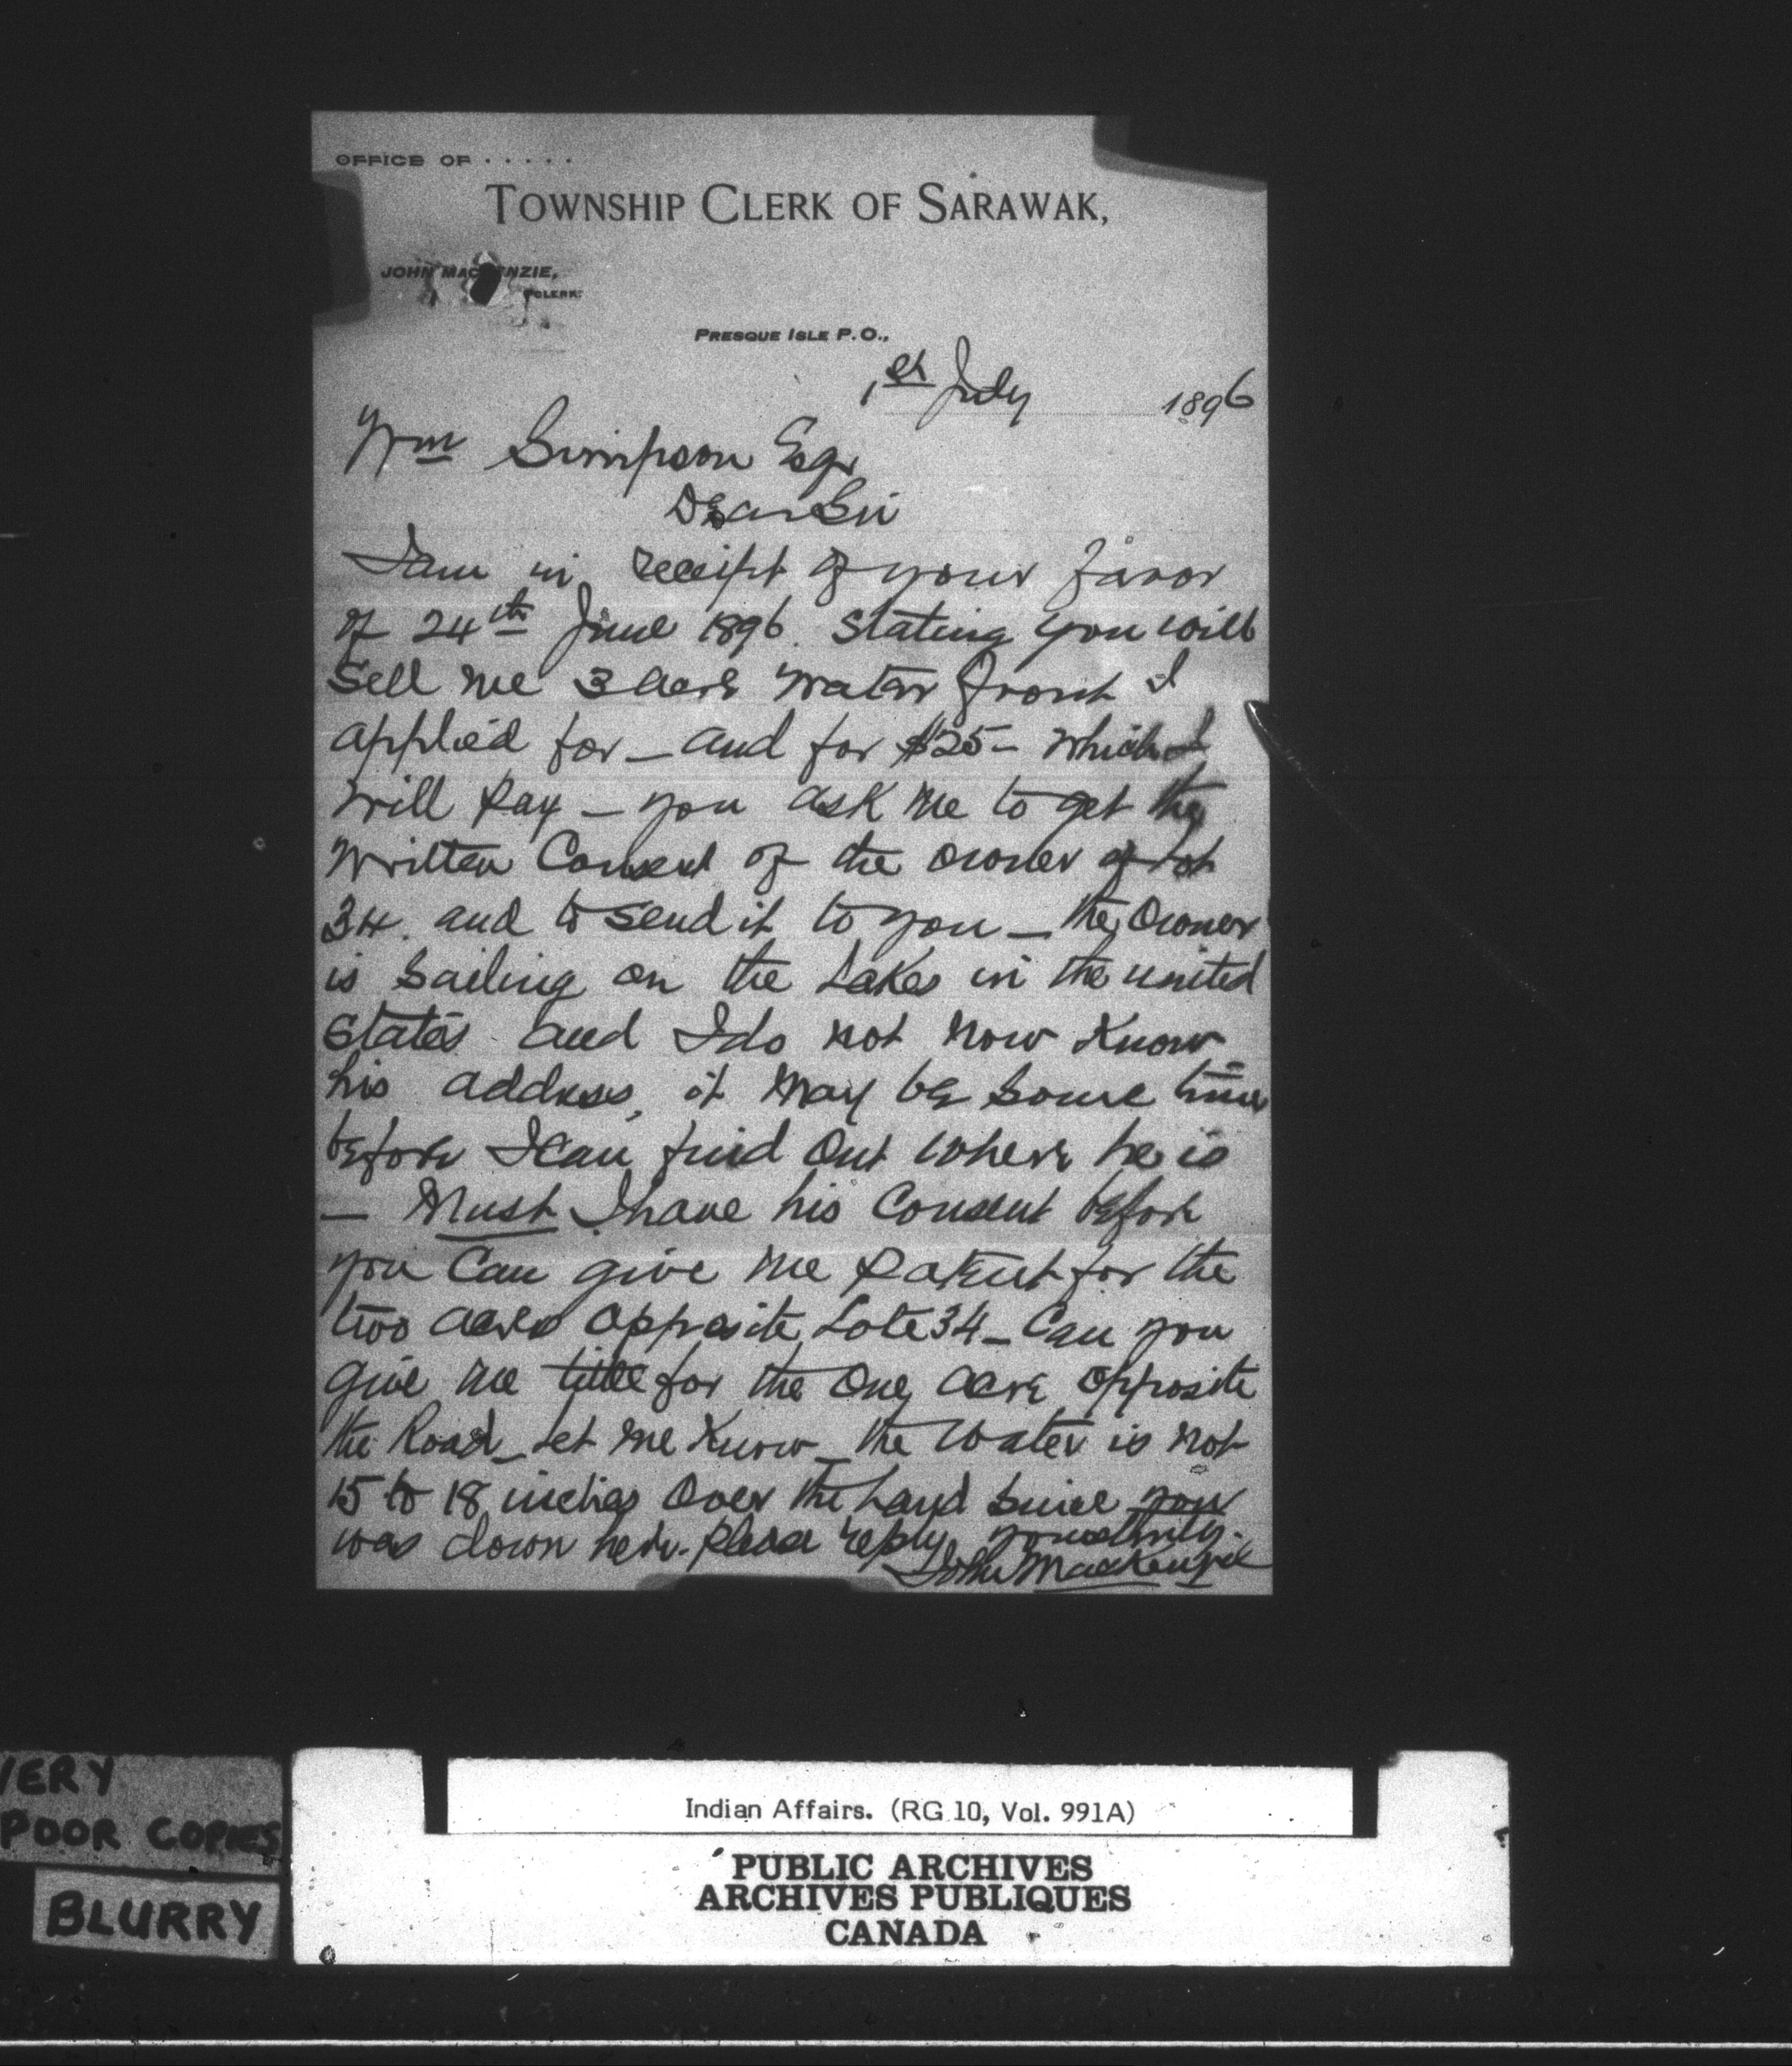 OFFICE OF . . . . .
TOWNSHIP CLERK OF SARAWAK,
JOHN MACKENZIE,
CLERK.
PRESQUE ISLE P.O.,
1st July 1896
Wm Simpson Esqr
Dear Sir
I am in receipt of your favor
of 24th June 1896. Stating you will
Sell me 3 acre water front I
applied for – and for $25 – which I
will pay – you ask me to get the
written Consent of the owner of Lot
34. and to send it to you – the owner
is sailing on the Lakes in the united
States and I do not now know
his address, it may be some time
before I can find out where he is
– Must I have his Consent before
you Can give me Patent for the
two acres opposite Lote 34 – Can you
give me title for the one acre opposite
the Road – Let me know – the water is not
15 to 18 inches over the Land since you
was down here. Please reply yours truly.
John MacKenzie
VERY
POOR COPIES
BLURRY
Indian Affairs. (RG 10, Vol. 991A)
PUBLIC ARCHIVES
ARCHIVES PUBLIQUES
CANADA